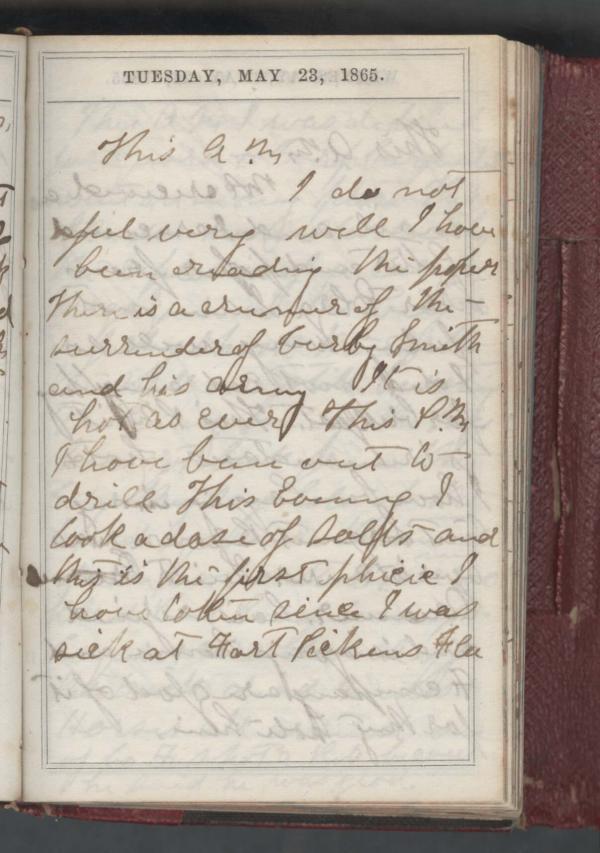 TUESDAY, MAY 23, 1865.
This A.M.
I do not
feel very well I have
been reading the paper
There is a rumor of the
surrender of Curby Smith
and his army It is
hot as ever This P.M
I have been out to
drill This Evening I
took a dose of Salts and
this is the first phicic I
have taken since I was
sick at Fort Pickens Fla